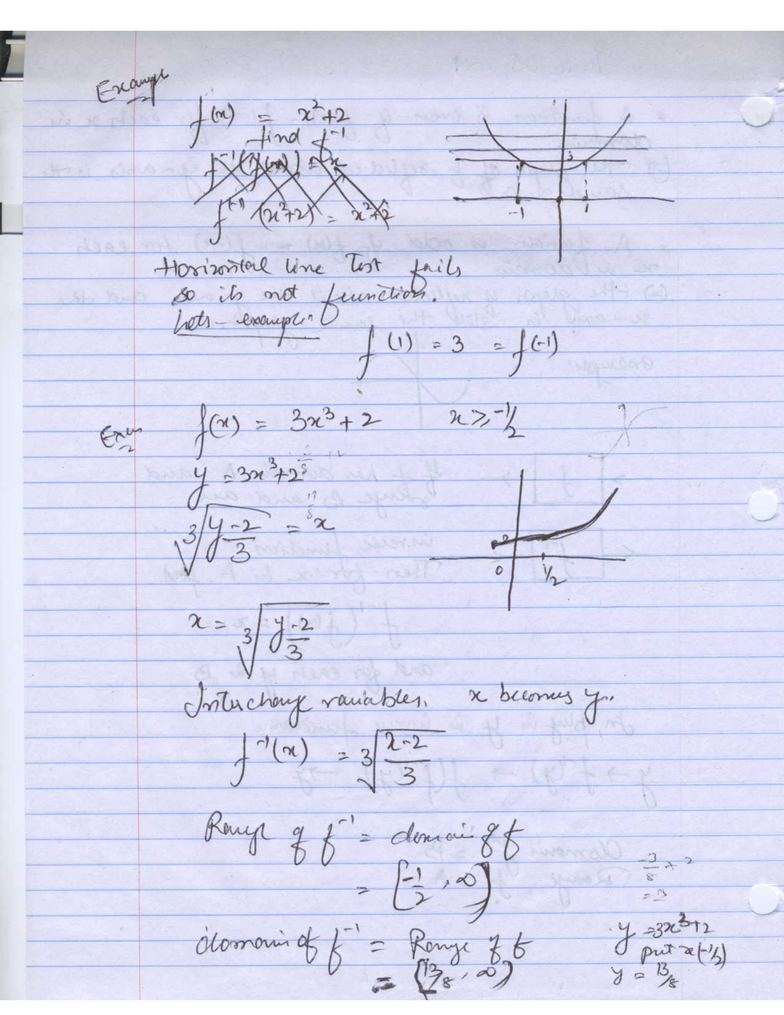 Example
f(x) = x²+2
find f⁻¹
f⁻¹(f(x)) = x
f⁻¹(x²+2) = x²+2
3
-1 1
Horizontal line Test fails
so its not function.
Lets - example
f(1) = 3 = f(-1)
f(x) = 3x³+2 x ≥ -1/2
y = 3x³+2
∛((y-2)/3) = x
2
0 1/2
x = ∛((y-2)/3)
Interchange variables. x becomes y.
f⁻¹(x) = ∛((x-2)/3)
Range of f⁻¹ = domain of f
= [-1/2, ∞)
-3/8 + 2
domain of f⁻¹ = Range of f
= [13/8, ∞)
y = 3x³+2
put x(-1/2)
y = 13/8